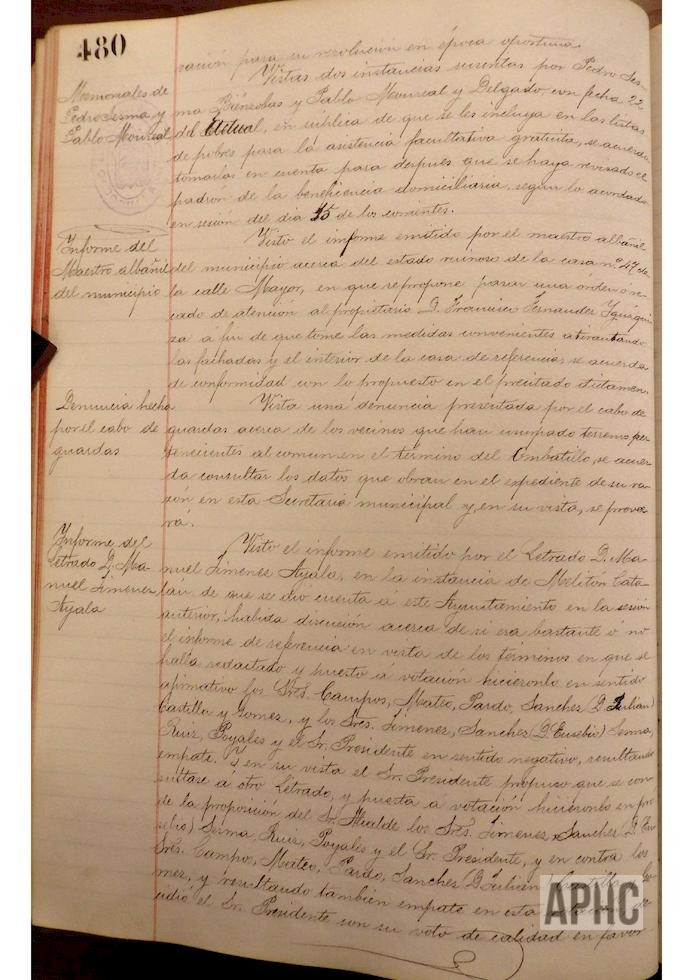 480
vación para su resolución en época oportuna.
Memoriales de
Pedro Sesma y
Pablo Monreal
Vistas dos instancias suscritas por Pedro Ses-
ma Biénzobas y Pablo Monreal y Delgado con fecha 22
del actual, en súplica de que se les incluya en las listas
de pobres para la asistencia facultativa gratuita, se acuerda
tomarlas en cuenta para después que se haya revisado el
padrón de la beneficencia domiciliaria, según lo acordado
en sesión del día 15 de los corrientes.
Informe del
Maestro albañil
del municipio
Visto el informe emitido por el maestro albañil
del municipio acerca del estado ruinoso de la casa nº 47 de
la calle Mayor, en que se propone pasar una órden ó re-
cado de atención al propietario D. Francisco Fernandez Yguáqui-
za á fin de que tome las medidas convenientes atirantando
las fachadas y el interior de la casa de referencia, se acuerda
de conformidad con lo propuesto en el precitado dictamen.
Denuncia hecha
por el cabo de
guardas
Vista una denuncia presentada por el cabo de
guardas acerca de los vecinos que han usurpado terrenos per-
tenecientes al comun en el término del Ombatillo, se acuer-
da consultar los datos que obran en el expediente de su ra-
zón en esta Secretaría municipal y, en su vista, se provee-
rá.
Informe del
Letrado D. Ma-
nuel Jimenez
Ayala
Visto el informe emitido por el Letrado D. Ma-
nuel Jimenez Ayala, en la instancia de Meliton Cata-
lán de que se dio cuenta á este Ayuntamiento en la sesión
anterior, habida discusión acerca de si era bastante ó no
el informe de referencia en vista de los términos en que se
halla redactado y puesto á votación hiciéronlo en sentido
afirmativo los Sres. Campos, Mateo, Pardo, Sanchez (D. Julian)
Castilla y Gomez, y los Sres. Jimenez, Sanchez (D. Eusebio) Sesma,
Ruiz, Poyales y el Sr. Presidente en sentido negativo, resultando
empate. Y en su vista el Sr. Presidente propuso que se con-
sultase á otro Letrado, y puesta á votación hiciéronlo en pro
de la proposición del Sr. Alcalde los Sres. Jimenez, Sanchez (D. Eu-
sebio) Sesma, Ruiz, Poyales y el Sr. Presidente, y en contra los
Sres. Campos, Mateo, Pardo, Sanchez (D. Julian)
mez, y resultando también empate en esta
cidió el Sr. Presidente con su voto de calidad en favor
APHC